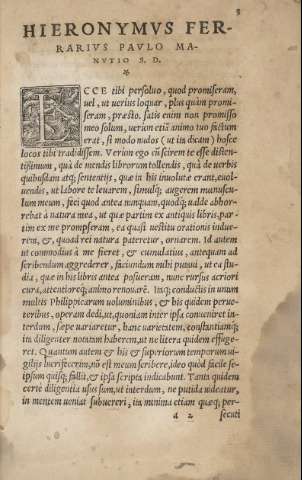 3
HIERONYMVS FER-
RARIVS PAVLO MA-
NVTIO S. D.
ECCE tibi persoluo, quod promiseram,
uel, ut uerius loquar, plus quàm promi-
seram, præsto. satis enim non promisso
meo solum, uerùm etiã animo tuo factum
erat, si modo nudos (ut in dicam) hosce
locos tibi tradidissem. Verùm ego cũ scirem te esse disten-
tissimum, quà de mendis librorum tollendis, quà de uerbis
quibusdam atq; sententijs, quæ in his inuolutæ erant, euol-
uendis, ut labore te leuarem, simulq; augerem munuscu-
lum meum, feci quod antea nunquam, quodq; ualde abhor-
rebat à natura mea, ut quæ partim ex antiquis libris, par-
tim ex me prompseram, ea quasi uestitu orationis indue-
rem, &, quoad rei natura pateretur, ornarem. Id autem
ut commodius à me fieret, & cumulatius, antequam ad
scribendum aggrederer, faciundum mihi putaui, ut ea stu-
dia, quæ in his libros antea posueram, nunc rursus acriori
cura, attentioreq; animo renouarē. Itaq; conductis in unum
multis Philippicarum uoluminibus, & his quidem perue-
teribus, operam dedi, ut, quoniam inter ipsa conueniret in-
terdum, sæpe uariaretur, hanc uarietatem, constantiamq;
ita diligenter notatam haberem, ut ne litera quidem effuge-
ret. Quantum autem & his & superiorum temporum ui-
gilijs lucrifecerim, nõ est meum scribere, ideo quòd facile se-
ipsum quisq; fallit, & ipsa scripta indicabunt. Tanta quidem
certè diligentia usus sum, ut interdum, ne putida uideatur,
in mentem ueniat subuereri, ita minima etiam quæq; per-
a 2 secuti